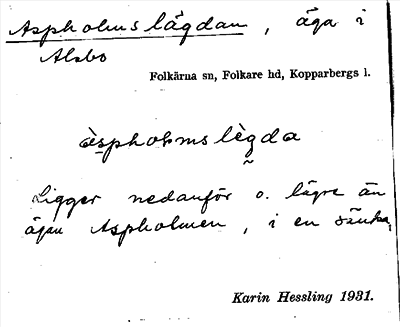 Aspholmslägdan, äga i
Alsbo
Folkärna sn, Folkare hd, Kopparbergs l.
àspholmslègda
Ligger nedanför o. lägre än
ägan Aspholmen, i en sänka,
Karin Hessling 1931.